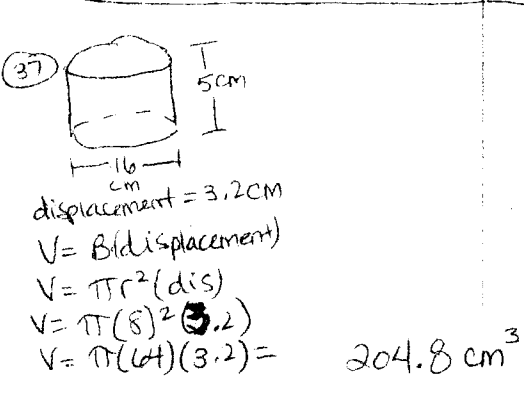 37
5cm
16
cm
displacement = 3.2cm
V = B(displacement)
V = πr²(dis)
V = π(8)²(3.2)
V = π(64)(3.2) = 204.8 cm³